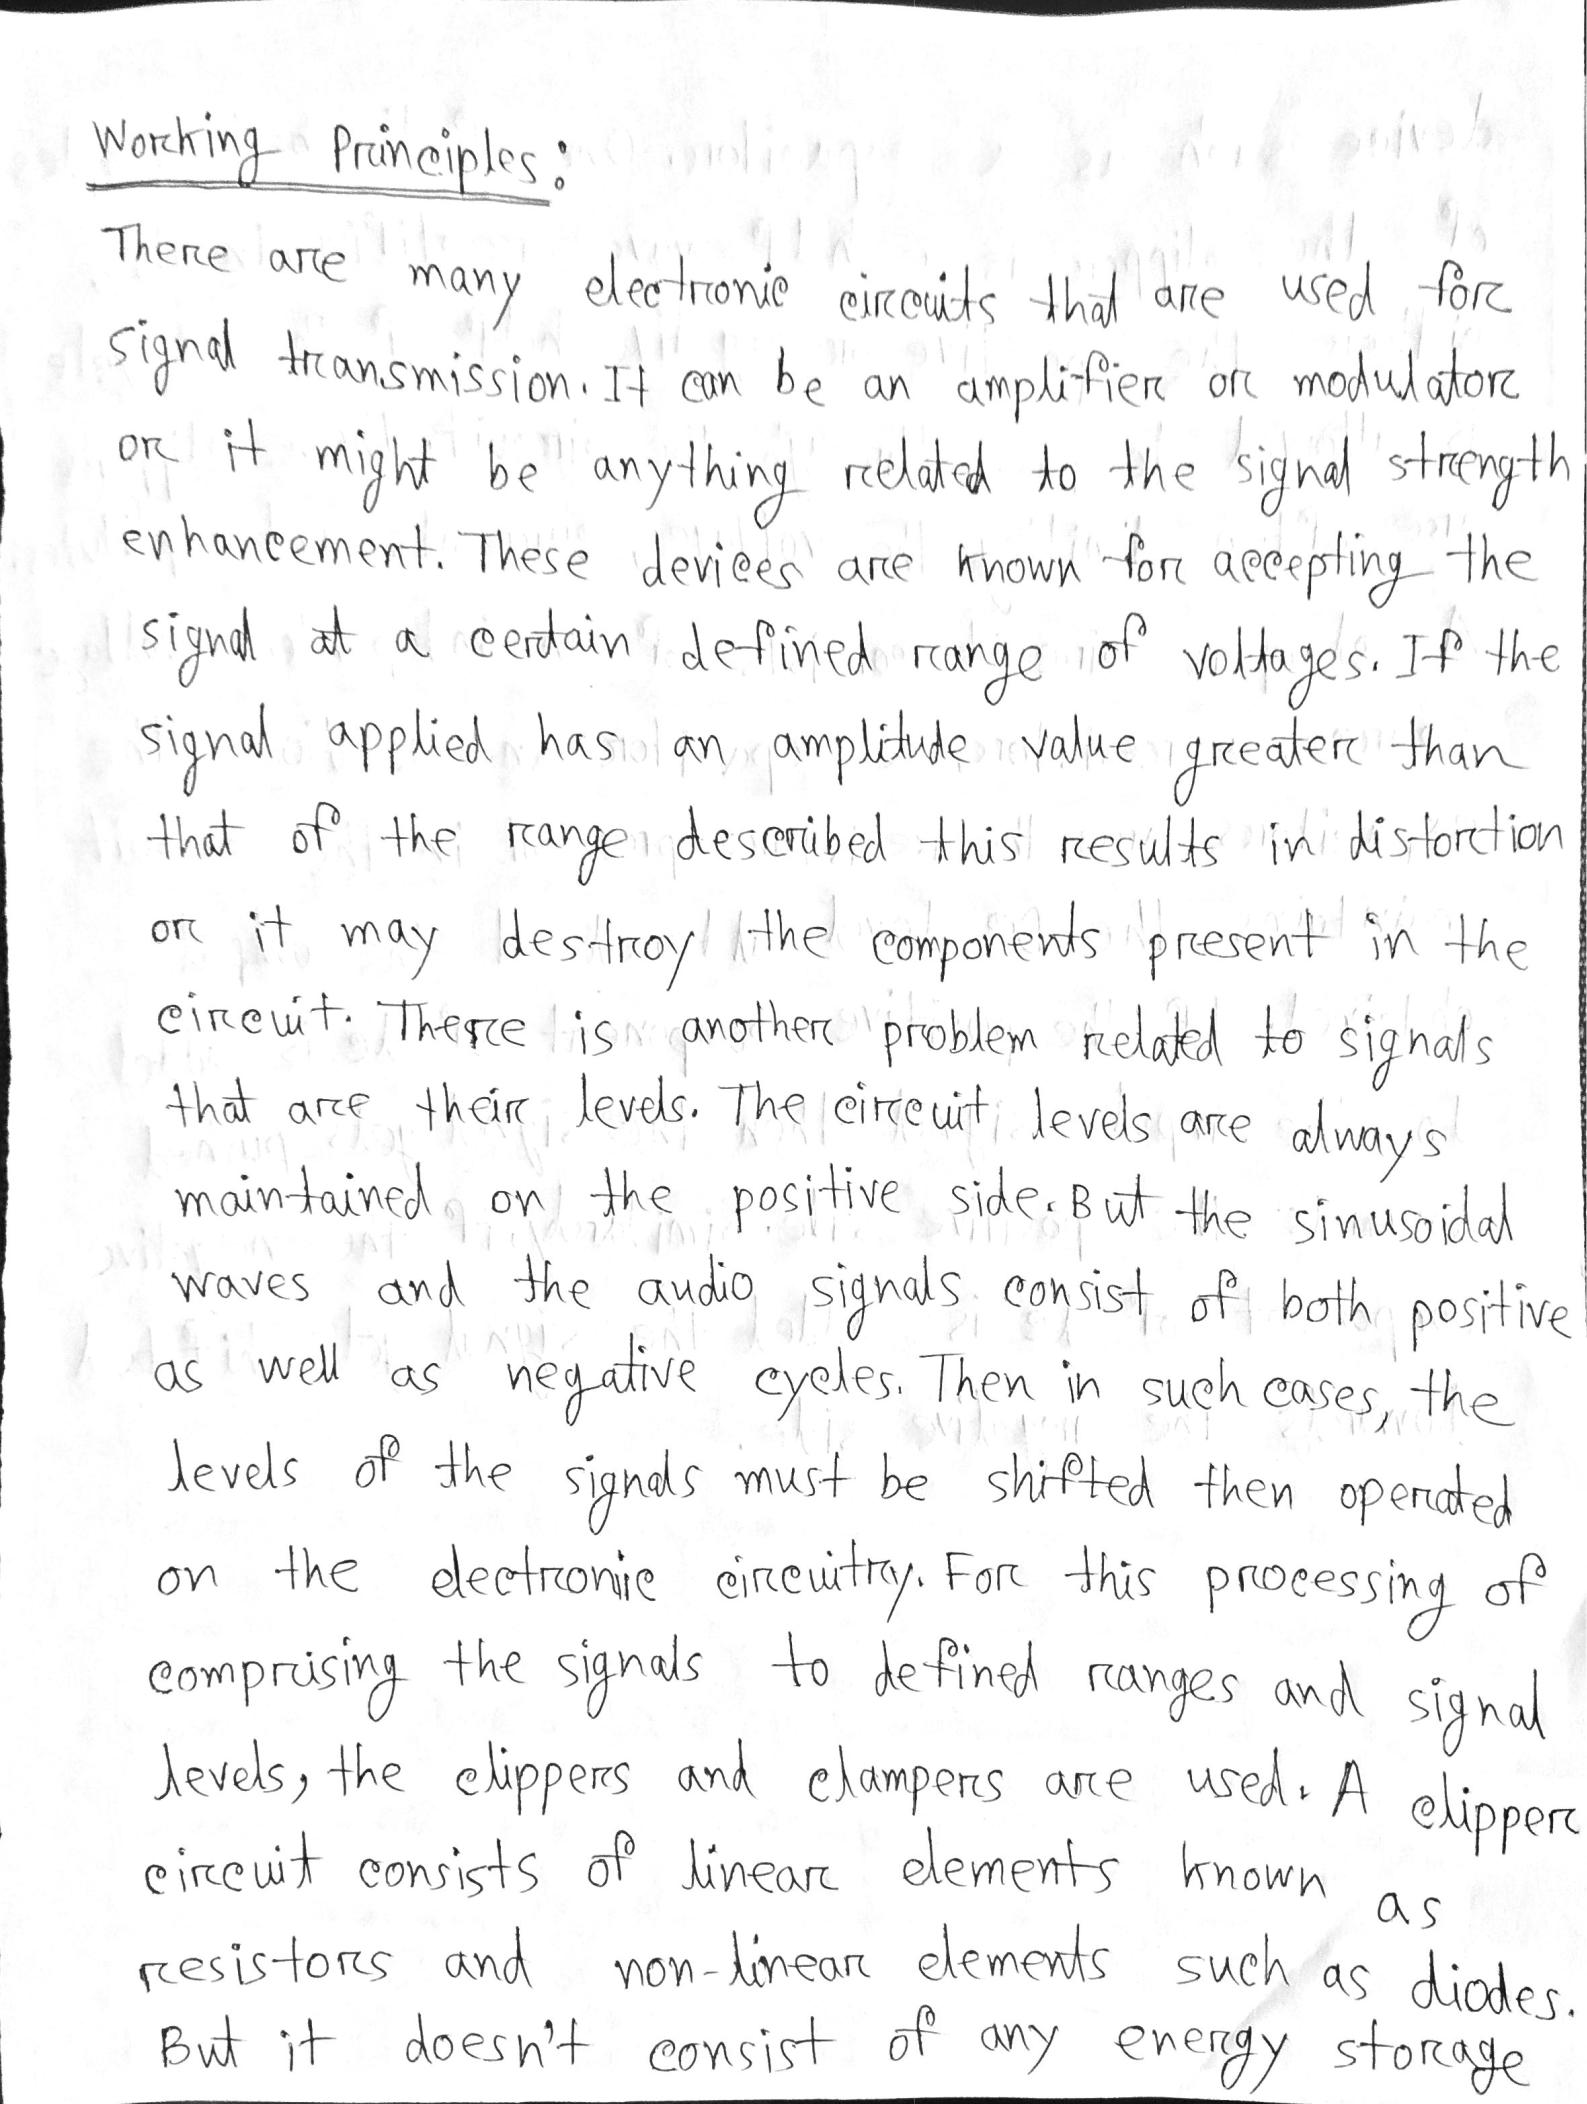 Working Principles:
There are many electronic circuits that are used for
signal transmission. It can be an amplifier or modulator
or it might be anything related to the signal strength
enhancement. These devices are known for accepting the
signal at a certain defined range of voltages. If the
signal applied has an amplitude value greater than
that of the range described this results in distortion
or it may destroy the components present in the
circuit. There is another problem related to signals
that are their levels. The circuit levels are always
maintained on the positive side. But the sinusoidal
waves and the audio signals consist of both positive
as well as negative cycles. Then in such cases, the
levels of the signals must be shifted then operated
on the electronic circuitry. For this processing of
comprising the signals to defined ranges and signal
levels, the clippers and clampers are used. A clipper
circuit consists of linear elements known as
resistors and non-linear elements such as diodes.
But it doesn't consist of any energy storage